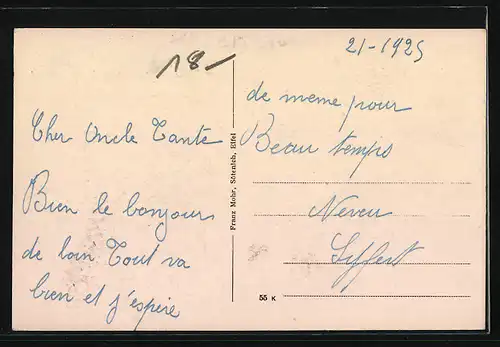 18-
21-1925
Cher Oncle Tante
Bien le bonjour
de loin Tout va
bien et j'espère
de meme pour
Beau temps
Neveu
Syffert
Franz Mohr, Sötenich, Eifel
55 K